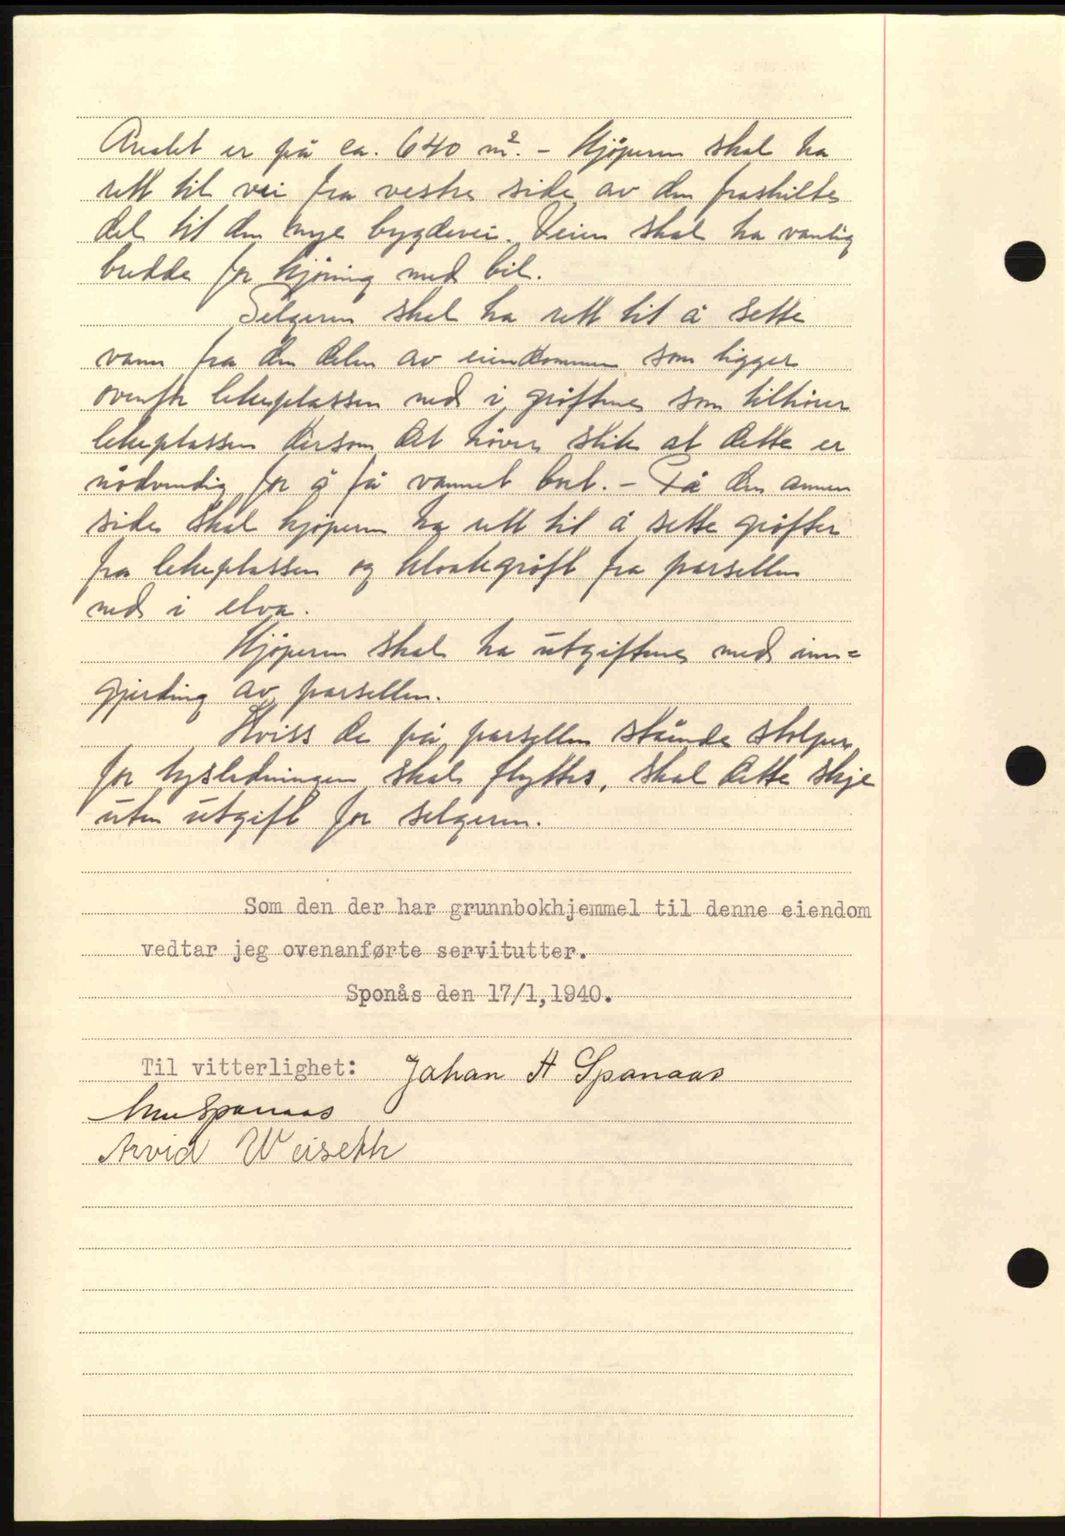 Arealet er på ca. 640 m². – Kjøperen skal ha
rett til vei fra vestre side av den fraskilte
del til den nye bygdevei. Veien skal ha vanlig
bredde for kjøring med bil.
Selgeren skal ha rett til å sette
vann fra den delen av eiendommen som ligger
ovenfor lekeplassen ned i grøftene som tilhører
lekeplassen dersom det høver slik at dette er
nødvendig for å få vannet bort. – På den annen
side skal kjøperen ha rett til å sette grøfter
fra lekeplassen og kloakkgrøft fra parsellen
ned i elva.
Kjøperen skal ha utgiftene med inn=
gjerding av parsellen.
Hviss de på parsellen stående stolper
for lysledningen skal flyttes, skal dette skje
uten utgift for selgeren.
Som den der har grunnbokhjemmel til denne eiendom
vedtar jeg ovenanførte servitutter.
Sponås den 17/1, 1940.
Til vitterlighet: Johan A Sponaas
Sponaas
Arvid Weiseth